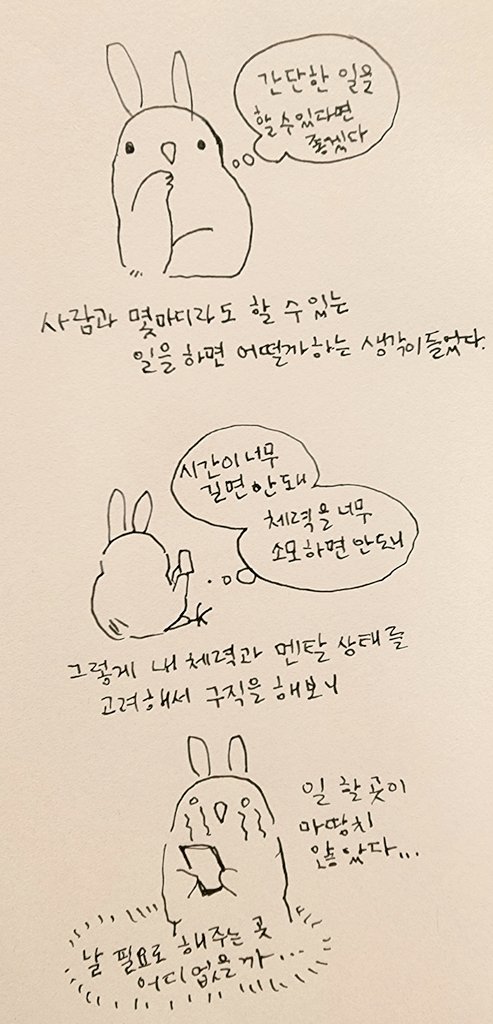 간단한 일을
할 수 있다면
좋겠다
사람과 몇마디라도 할 수 있는
일을 하면 어떨까하는 생각이 들었다.
시간이 너무
길면 안 돼
체력을 너무
소모하면 안 돼
그렇게 내 체력과 멘탈 상태를
고려해서 구직을 해보니
일 할 곳이
마땅치
않았다...
날 필요로 해주는 곳
어디 없을까...